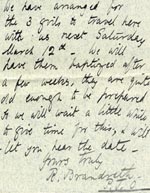 We have arranged for
the 3 girls to travel here
with us next Saturday
March 12th - We will
have them baptized after
a few weeks, they are quite
old enough to be prepared
so we will wait a little while
to give time for this, & will
let you hear the date.
Yours truly
R. Brandreth